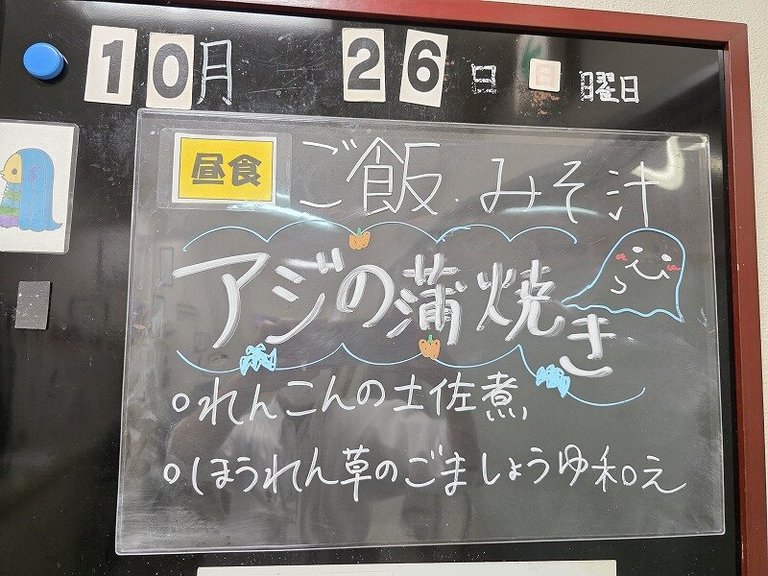 10月 26日 日曜日
昼食 ご飯 みそ汁
アジの蒲焼き
○れんこんの土佐煮
○ほうれん草のごましょうゆ和え